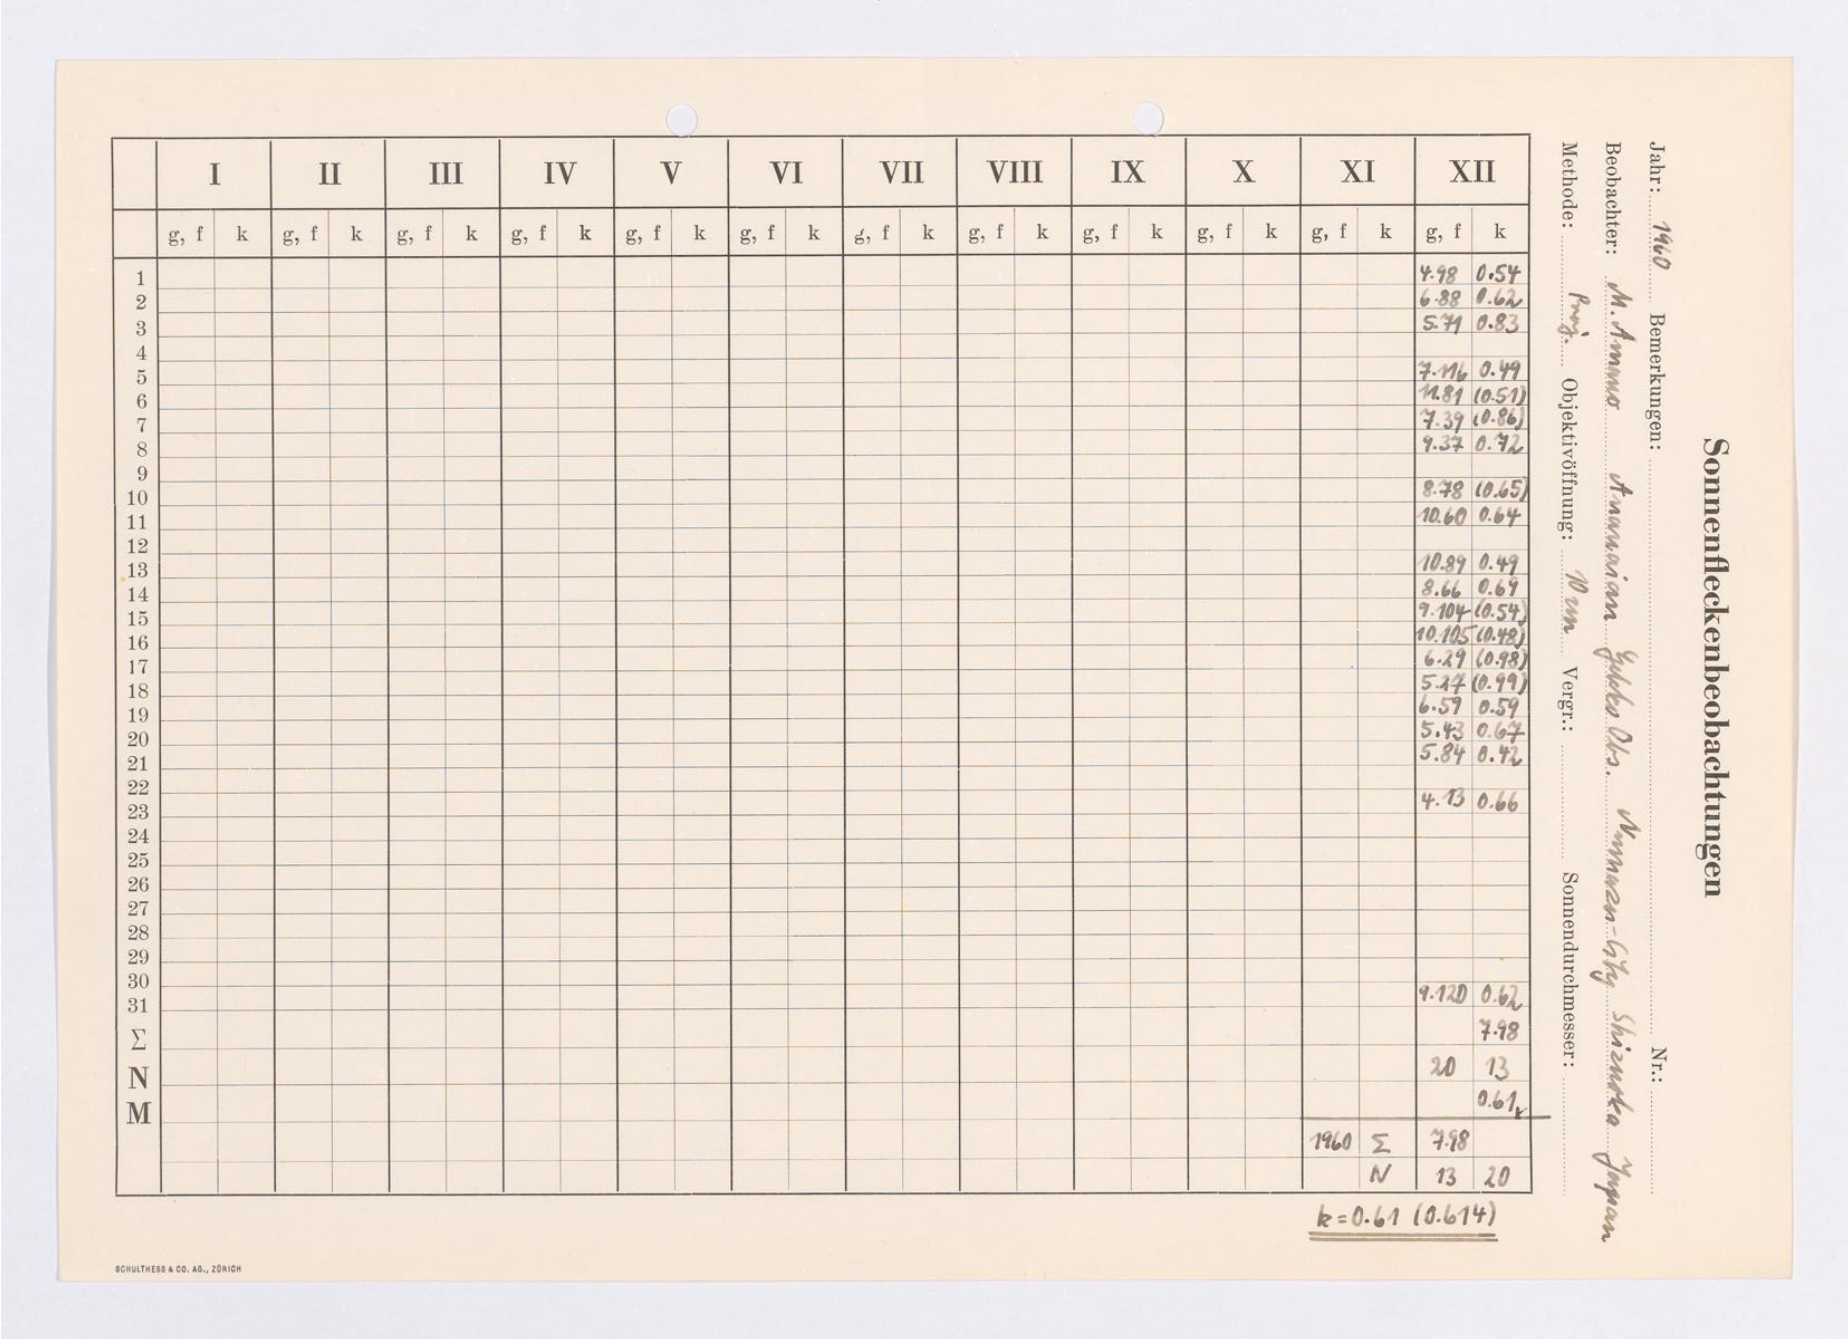 Sonnenfleckenbeobachtungen
Jahr: 1960 Bemerkungen: Nr.:
Beobachter: M. Amano Obs. Numazu-City Shizuoka Japan
Methode: Proj. Objektivöffnung: 10 cm Vergr.: Sonnendurchmesser:
I II III IV V VI VII VIII IX X XI XII
g, f k g, f k g, f k g, f k g, f k g, f k g, f k g, f k g, f k g, f k g, f k g, f k
1 4.98 0.54
2 6.88 0.62
3 5.71 0.83
4
5 7.116 0.49
6 11.81 (0.51)
7 7.39 (0.86)
8 9.37 0.72
9
10 8.78 (0.65)
11 10.60 0.64
12
13 10.89 0.49
14 8.66 0.69
15 9.104 (0.54)
16 10.105 (0.48)
17 6.29 (0.98)
18 5.27 (0.99)
19 6.59 0.59
20 5.43 0.67
21 5.84 0.42
22
23 4.13 0.66
24
25
26
27
28
29
30
31 9.120 0.62
Σ 7.98
N 20 13
M 0.61
1960 Σ 7.98
N 13 20
k = 0.61 (0.614)
SCHULTHESS & CO. AG., ZÜRICH